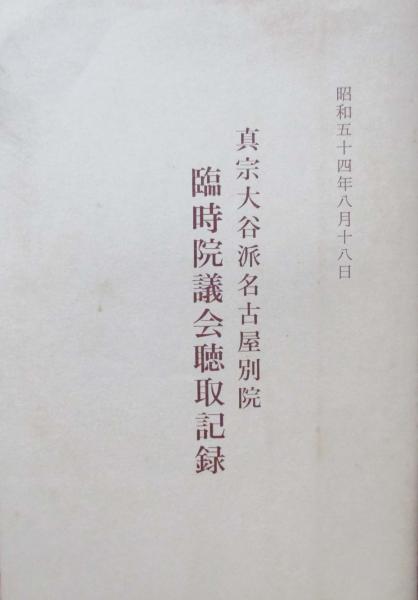 昭和五十四年八月十八日
真宗大谷派名古屋別院
臨時院議会聴取記録